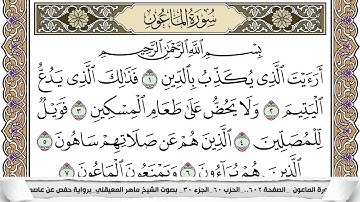 سُورَةُ المَاعُونِ
بِسْمِ ٱللَّهِ ٱلرَّحْمَٰنِ ٱلرَّحِيمِ
أَرَءَيْتَ ٱلَّذِى يُكَذِّبُ بِٱلدِّينِ ١ فَذَٰلِكَ ٱلَّذِى يَدُعُّ
ٱلْيَتِيمَ ٢ وَلَا يَحُضُّ عَلَىٰ طَعَامِ ٱلْمِسْكِينِ ٣ فَوَيْلٌ
لِّلْمُصَلِّينَ ٤ ٱلَّذِينَ هُمْ عَن صَلَاتِهِمْ سَاهُونَ ٥
ٱلَّذِينَ هُمْ يُرَآءُونَ ٦ وَيَمْنَعُونَ ٱلْمَاعُونَ ٧
ورة الماعون _الصفحة ٦٠٢_ الحزب ٦٠_الجزء ٣٠_ بصوت الشيخ ماهر المعيقلي برواية حفص عن عاصم